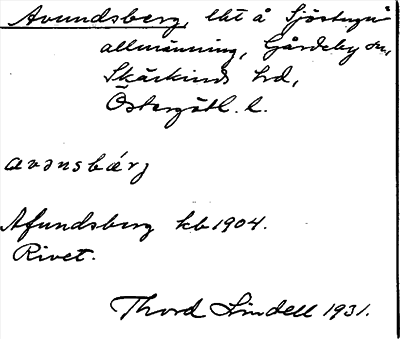 Avundsberg, lht å Sjöstugu
allmänning, Gårdeby sn,
Skärkinds hd,
Östergötl. l.
avənsbárj
Afundsberg kb 1904.
Rivet.
Thord Lindell 1931.